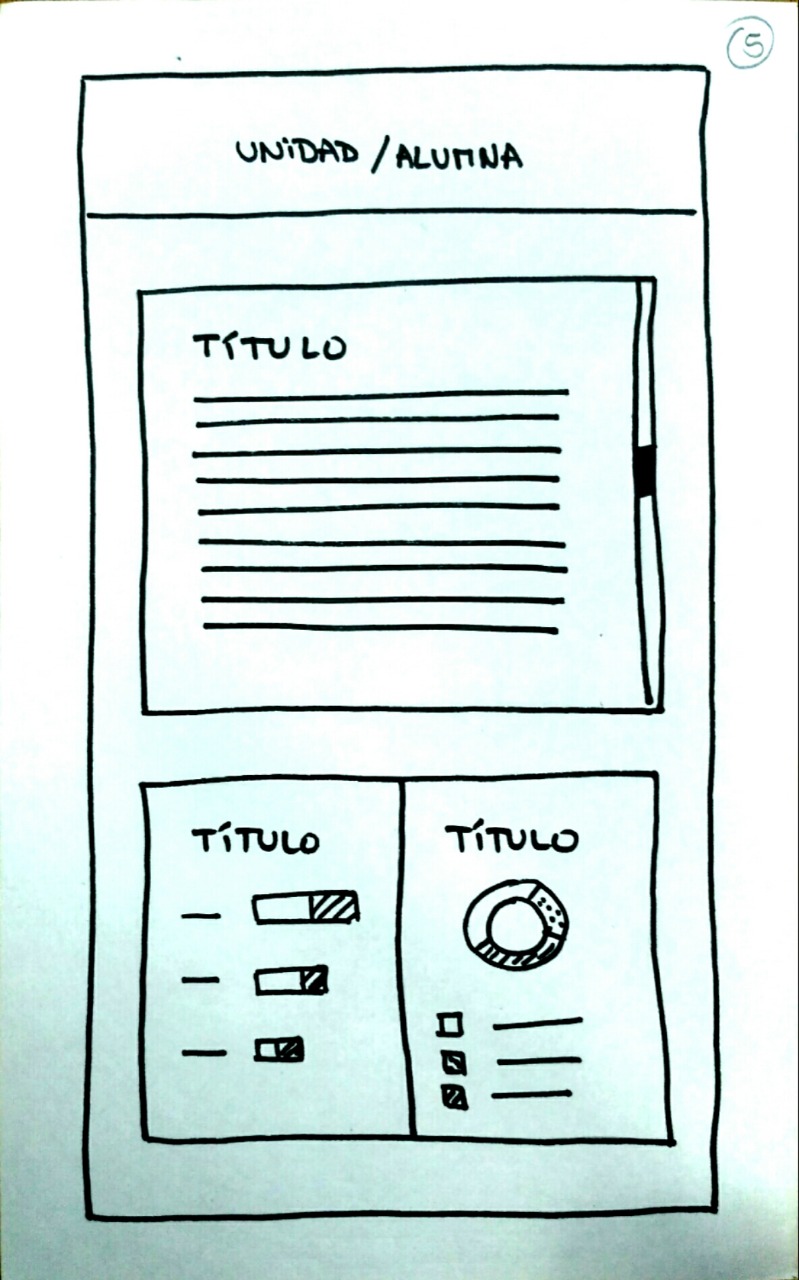 5
UNIDAD / ALUMNA
TÍTULO
TÍTULO
TÍTULO